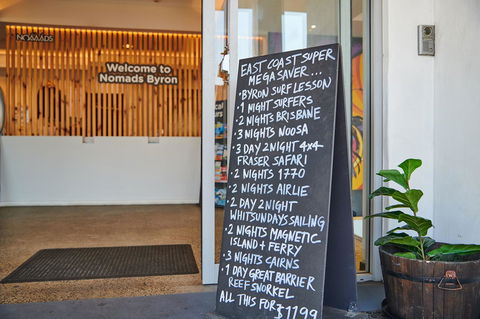 NOMADS
Welcome to
Nomads Byron
EAST COAST SUPER
MEGA SAVER...
• BYRON SURF LESSON
• 1 NIGHT SURFERS
• 2 NIGHTS BRISBANE
• 3 NIGHTS NOOSA
• 3 DAY 2 NIGHT 4x4
FRASER SAFARI
• 2 NIGHTS 1770
• 2 NIGHTS AIRLIE
• 2 DAY 2 NIGHT
WHITSUNDAYS SAILING
• 2 NIGHTS MAGNETIC
ISLAND + FERRY
• 3 NIGHTS CAIRNS
• 1 DAY GREAT BARRIER
REEF SNORKEL
ALL THIS FOR $1199